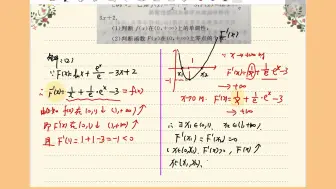 3x+2.
(1)判断 f(x) 在 (0,+∞) 上的单调性;
(2)判断函数 F(x) 在 (0,+∞) 上零点的
解:(2)
∵ F(x)=lnx+ e^x/e -3x+2
∴ F'(x)= 1/x + 1/e·e^x -3 = f(x)
在(0,1)↓ (1,+∞)↑
即 F'(x) 在(0,1)↓ (1,+∞)↑
且 F'(1)=1+1-3=-1<0
F'(x)
x₁
x₂
x→+∞时
F'(x)= 1/x + 1/e·e^x -3
→+∞
x→0时 F'(x)= 1/x + 1/e·e^x -3
→+∞
∴ ∃ x₁∈(0,1), x₂∈(1,+∞),
F'(x₁)=F'(x₂)=0
x∈(0,x₁), F'(x)>0, F(x)↑
x∈(x₁,x₂),